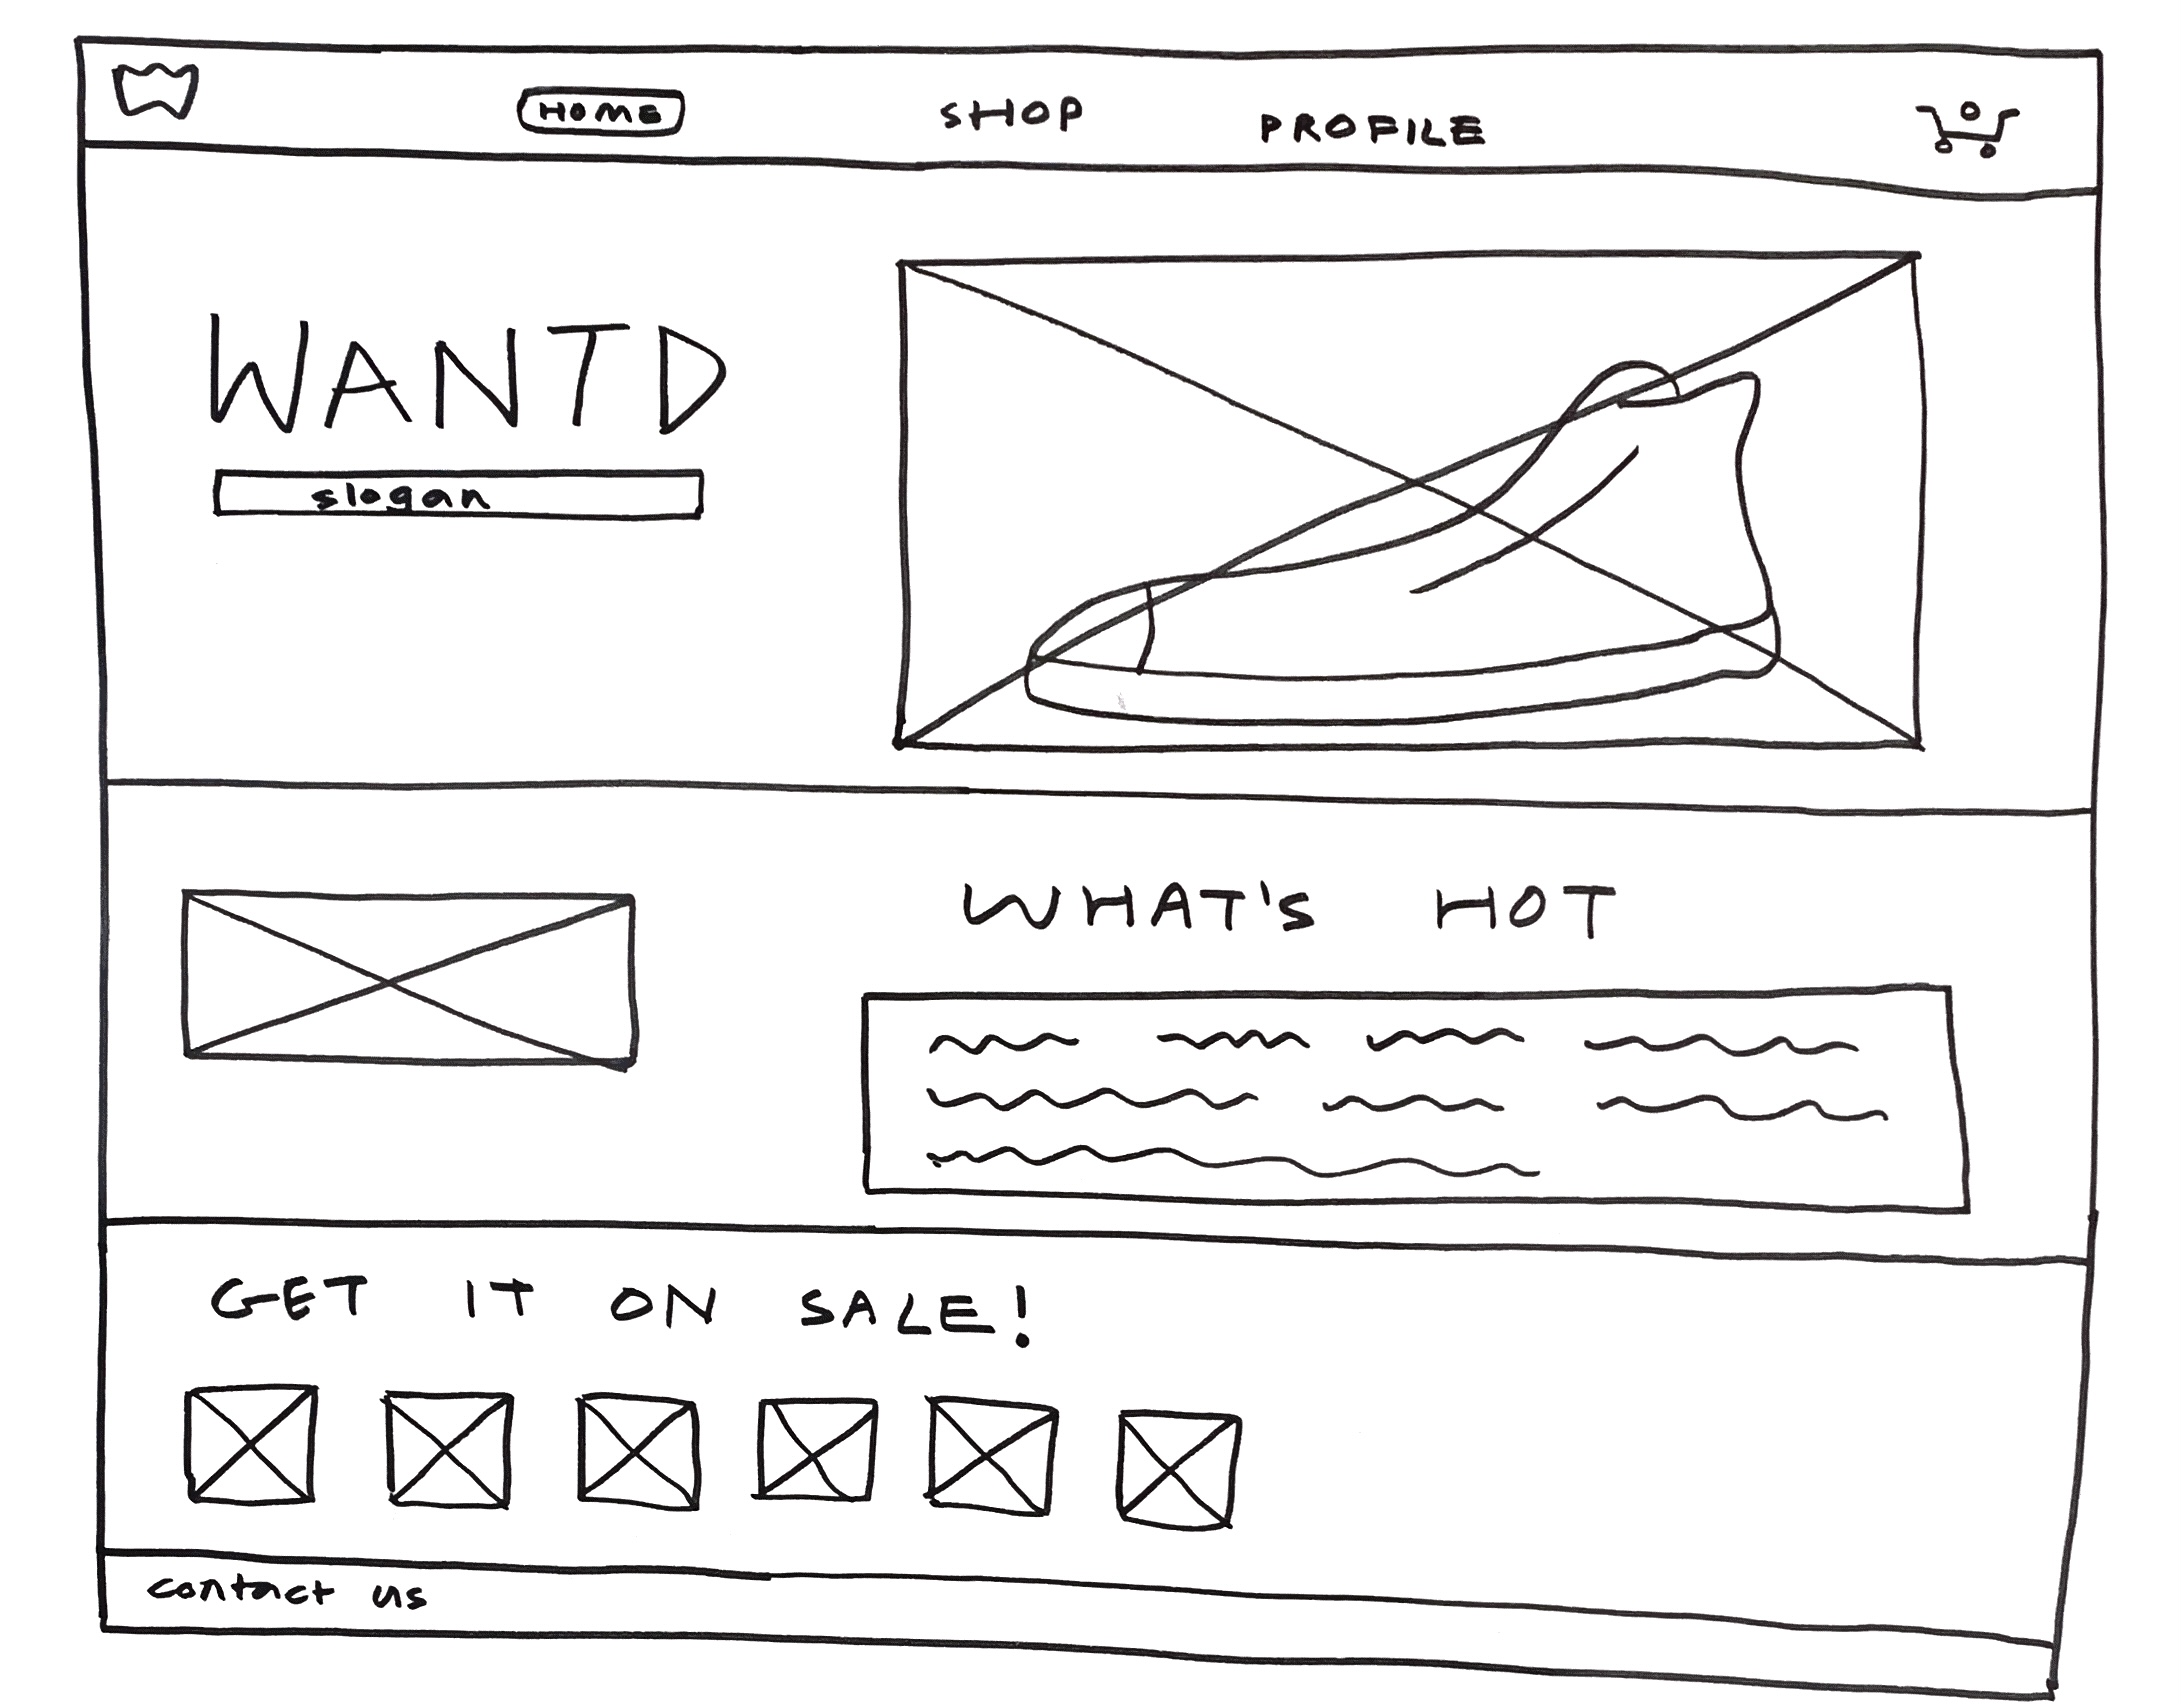 HOME SHOP PROFILE
WANTD
slogan
WHAT'S HOT
GET IT ON SALE!
contact us